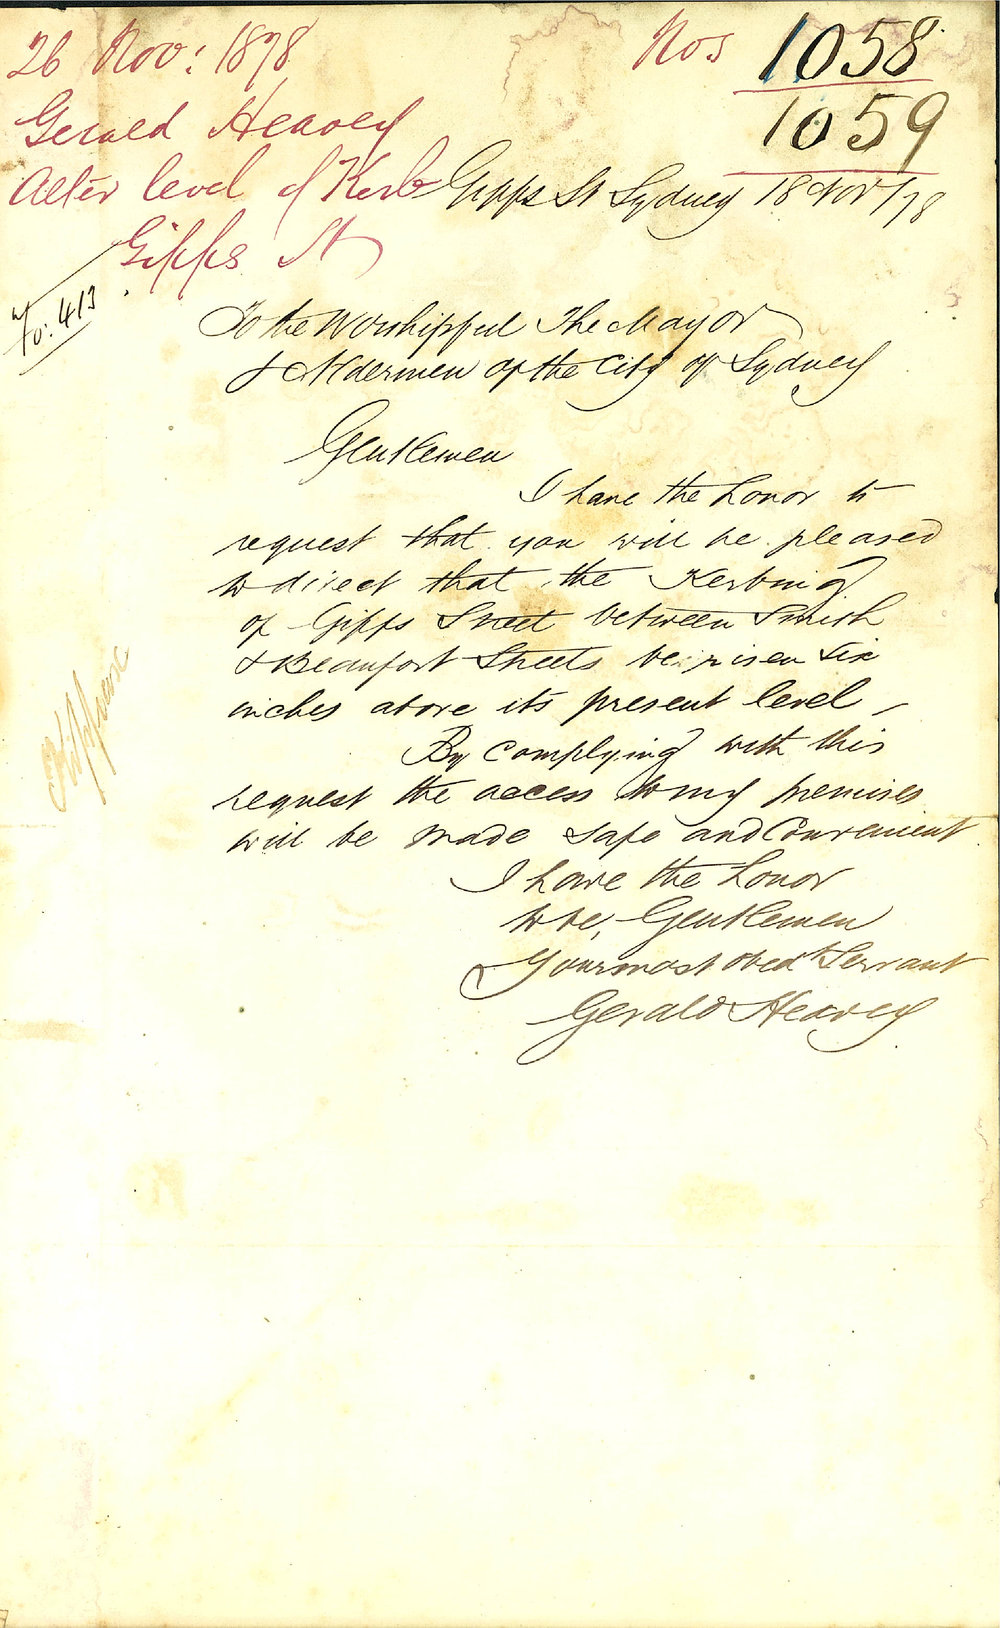 26 Nov: 1878
Nos 1058
1059
Gerald Heavey
Alter level of Kerb
Gipps St
Gipps St Sydney 18 Nov /78
Fo: 413
To the Worshipful The Mayor
& Aldermen of the City of Sydney
Gentlemen
I have the honor to
request that you will be pleased
to direct that the Kerbing
of Gipps Street between Smith
& Beaufort Streets be risen six
inches above its present level,
By complying with this
request the access to my premises
will be made safe and Convenient
I have the honor
to be, Gentlemen
Your most obedt Servant
Gerald Heavey